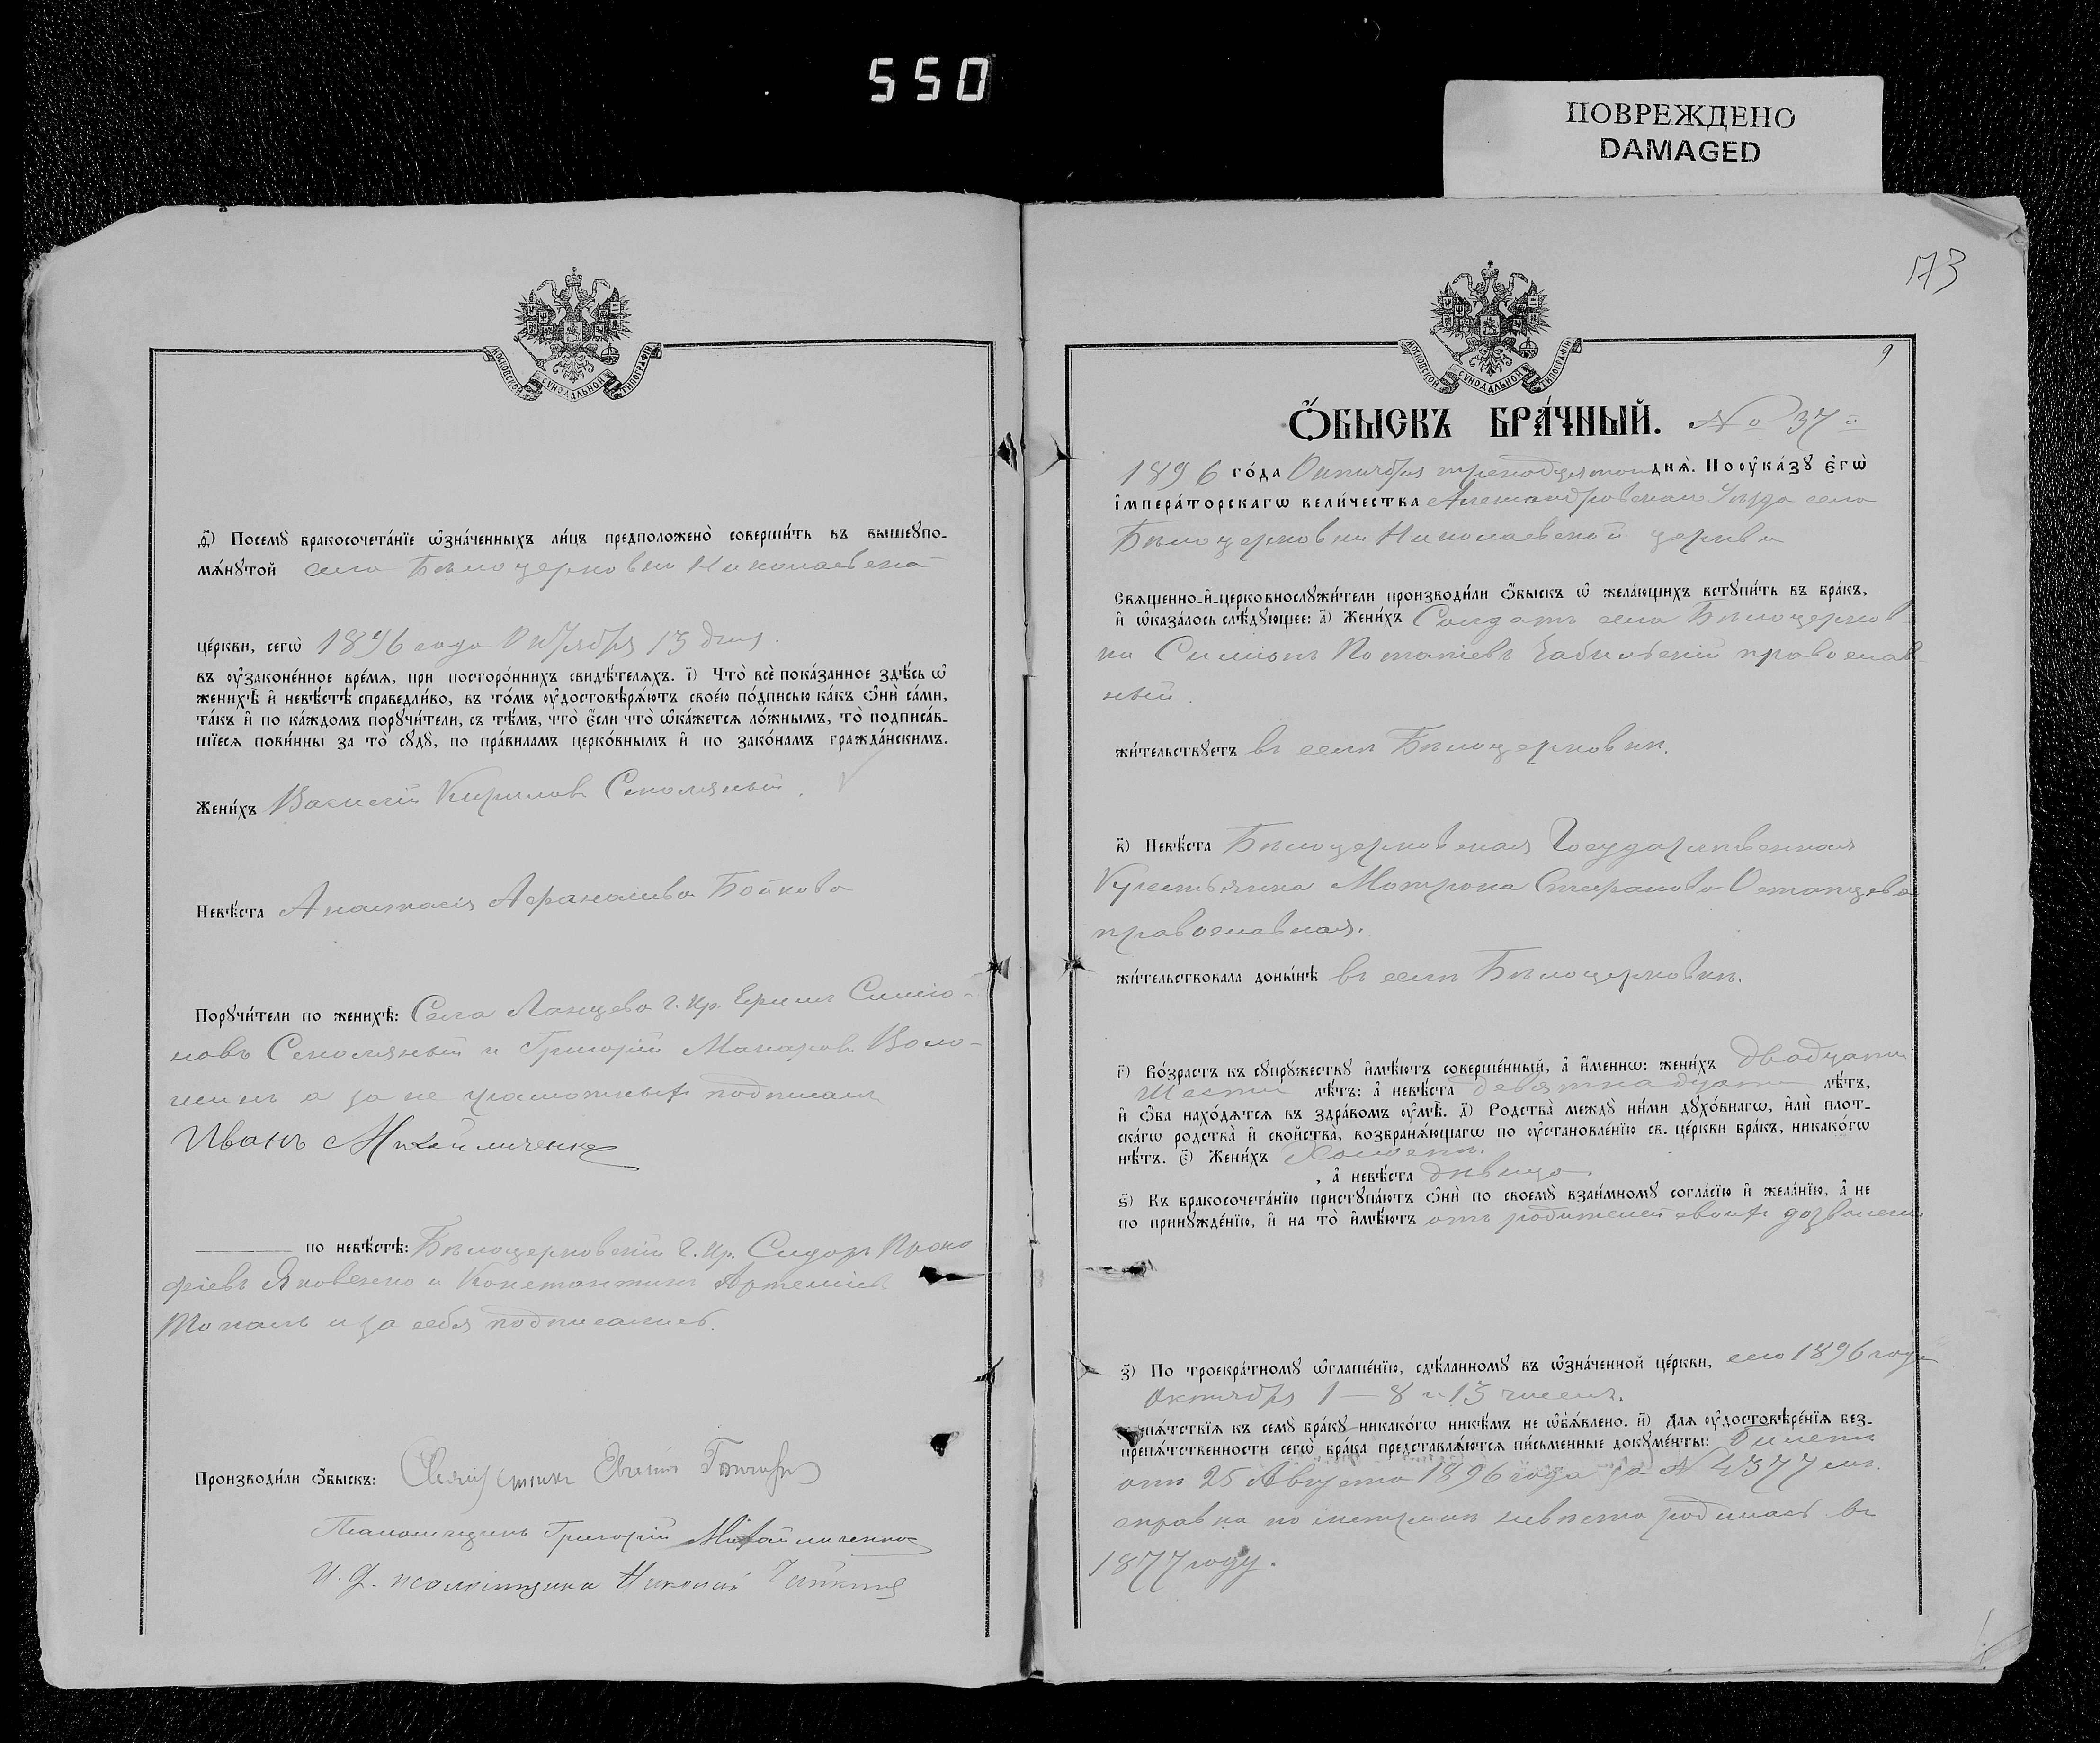 550
ПОВРЕЖДЕНО
DAMAGED
МОСКОВСКОЙ СѴНОДАЛЬНОЙ ТИПОГРАФІИ
ѳ҃) Посемꙋ бракосочета́нїе ѡ҆зна́ченныхъ ли́цъ предположено̀ соверши́ть въ вышеꙋпо-
мѧ́нꙋтой села Бѣлоцерковки Николаевской
це́ркви, сегѡ̀ 1896 года Октября 13 дня.
въ ᲂу҆зако́ненное вре́мѧ, при посторо́ннихъ свидѣ́телѧхъ. і҃) Что̀ всѐ пока́занное здѣ́сь ѡ҆
женихѣ̀ и҆ невѣ́стѣ справедли́во, въ то́мъ ᲂу҆достовѣрѧ́ютъ свое́ю по́дписью ка́къ ѻ҆нѝ са́ми,
та́къ и҆ по ка́ждомъ порꙋчи́тели, съ тѣ́мъ, что̀ є҆́сли что̀ ѡ҆ка́жетсѧ ло́жнымъ, то̀ подписа́в-
шїесѧ пови́нны за то̀ сꙋдꙋ̀, по пра́виламъ церко́внымъ и҆ по зако́намъ гражда́нскимъ.
Жени́хъ Василій Кирилов Сиколяный.
Невѣ́ста Анастасія Афанасіева Бойкова
Порꙋчи́тели по женихѣ̀: Села Ланцева г. кр. Ефим Симіо-
новъ Сиколяный и Григорій Макаров Воло-
шинъ а за не грамотных подписалъ
Иванъ Михайличенко
по невѣ́стѣ: Бѣлоцерковскій г. кр. Сидоръ Проко
фіевъ Яковенко и Константинъ Артеміев
Топалъ и за себя подписались.
Производи́ли ѻ҆́быскъ: Священникъ Евгеній
Псаломщикъ Григорій Михайличенко
И. д. псаломщика Николай
173
9
МОСКОВСКОЙ СѴНОДАЛЬНОЙ ТИПОГРАФІИ
Ѻ҆́БЫСКЪ БРА́ЧНЫЙ. № 37й
1896 го́да Октября тринадцатого днѧ̀. По ᲂу҆ка́зꙋ є҆гѡ̀
і҆мпера́торскагѡ вели́чества Александровскаго Уѣзда села
Бѣлоцерковки Николаевской церкви
Свѧще́нно-и҆-церковнослꙋжи́тели производи́ли ѻ҆́быскъ ѡ҆ жела́ющихъ встꙋпи́ть въ бра́къ,
и҆ ѡ҆каза́лось слѣ́дꙋющее: а҃) Жени́хъ Солдатъ села Бѣлоцерков-
ки Симіонъ Потапіевъ православ-
ный.
жи́тельствꙋетъ въ селѣ Бѣлоцерковки.
в҃) Невѣ́ста Бѣлоцерковская Государственная
Крестьянка Мотрона Стефанова Остапцева
православная.
жи́тельствовала доны́нѣ въ селѣ Бѣлоцерковки.
г҃) Во́зрастъ къ сꙋпрꙋ́жествꙋ и҆мѣ́ютъ соверше́нный, а҆ и҆́менно: жени́хъ двадцати
шести лѣ́тъ: а҆ невѣ́ста девятнадцати лѣ́тъ,
и҆ ѻ҆́ба нахо́дѧтсѧ въ здра́вомъ ᲂу҆мѣ̀. д҃) Родства̀ междꙋ ни́ми дꙋхо́внагѡ, и҆лѝ пло́т-
скагѡ родства̀ и҆ сво́йства, возбранѧ́ющагѡ по ᲂу҆становле́нїю св. це́ркви бра́къ, никако́гѡ
нѣ́тъ. є҃) Жени́хъ Холостъ.
, а҆ невѣ́ста дѣвица.
ѕ҃) Къ бракосочета́нїю пристꙋпа́ютъ ѻ҆нѝ по своемꙋ̀ взаи́мномꙋ согла́сїю и҆ жела́нїю, а҆ не
по принꙋжде́нїю, и҆ на то̀ и҆мѣ́ютъ отъ родителей своихъ дозволеніе
з҃) По троекра́тномꙋ ѡ҆глаше́нїю, сдѣ́ланномꙋ въ ѡ҆зна́ченной це́ркви, сего 1896 года
Октября 1 - 8 и 13 числа.
препѧ́тствїѧ къ семꙋ̀ бра́кꙋ никако́гѡ никѣ́мъ не ѡ҆б̾ѧ́влено. и҃) Длѧ ᲂу҆достовѣре́нїѧ без-
препѧ́тственности сегѡ̀ бра́ка представлѧ́ютсѧ пи́сьменные докꙋме́нты: Билетъ
отъ 25 Августа 1896 года за № 4377 
справка по метрикѣ невѣста родилась въ
1877 году.